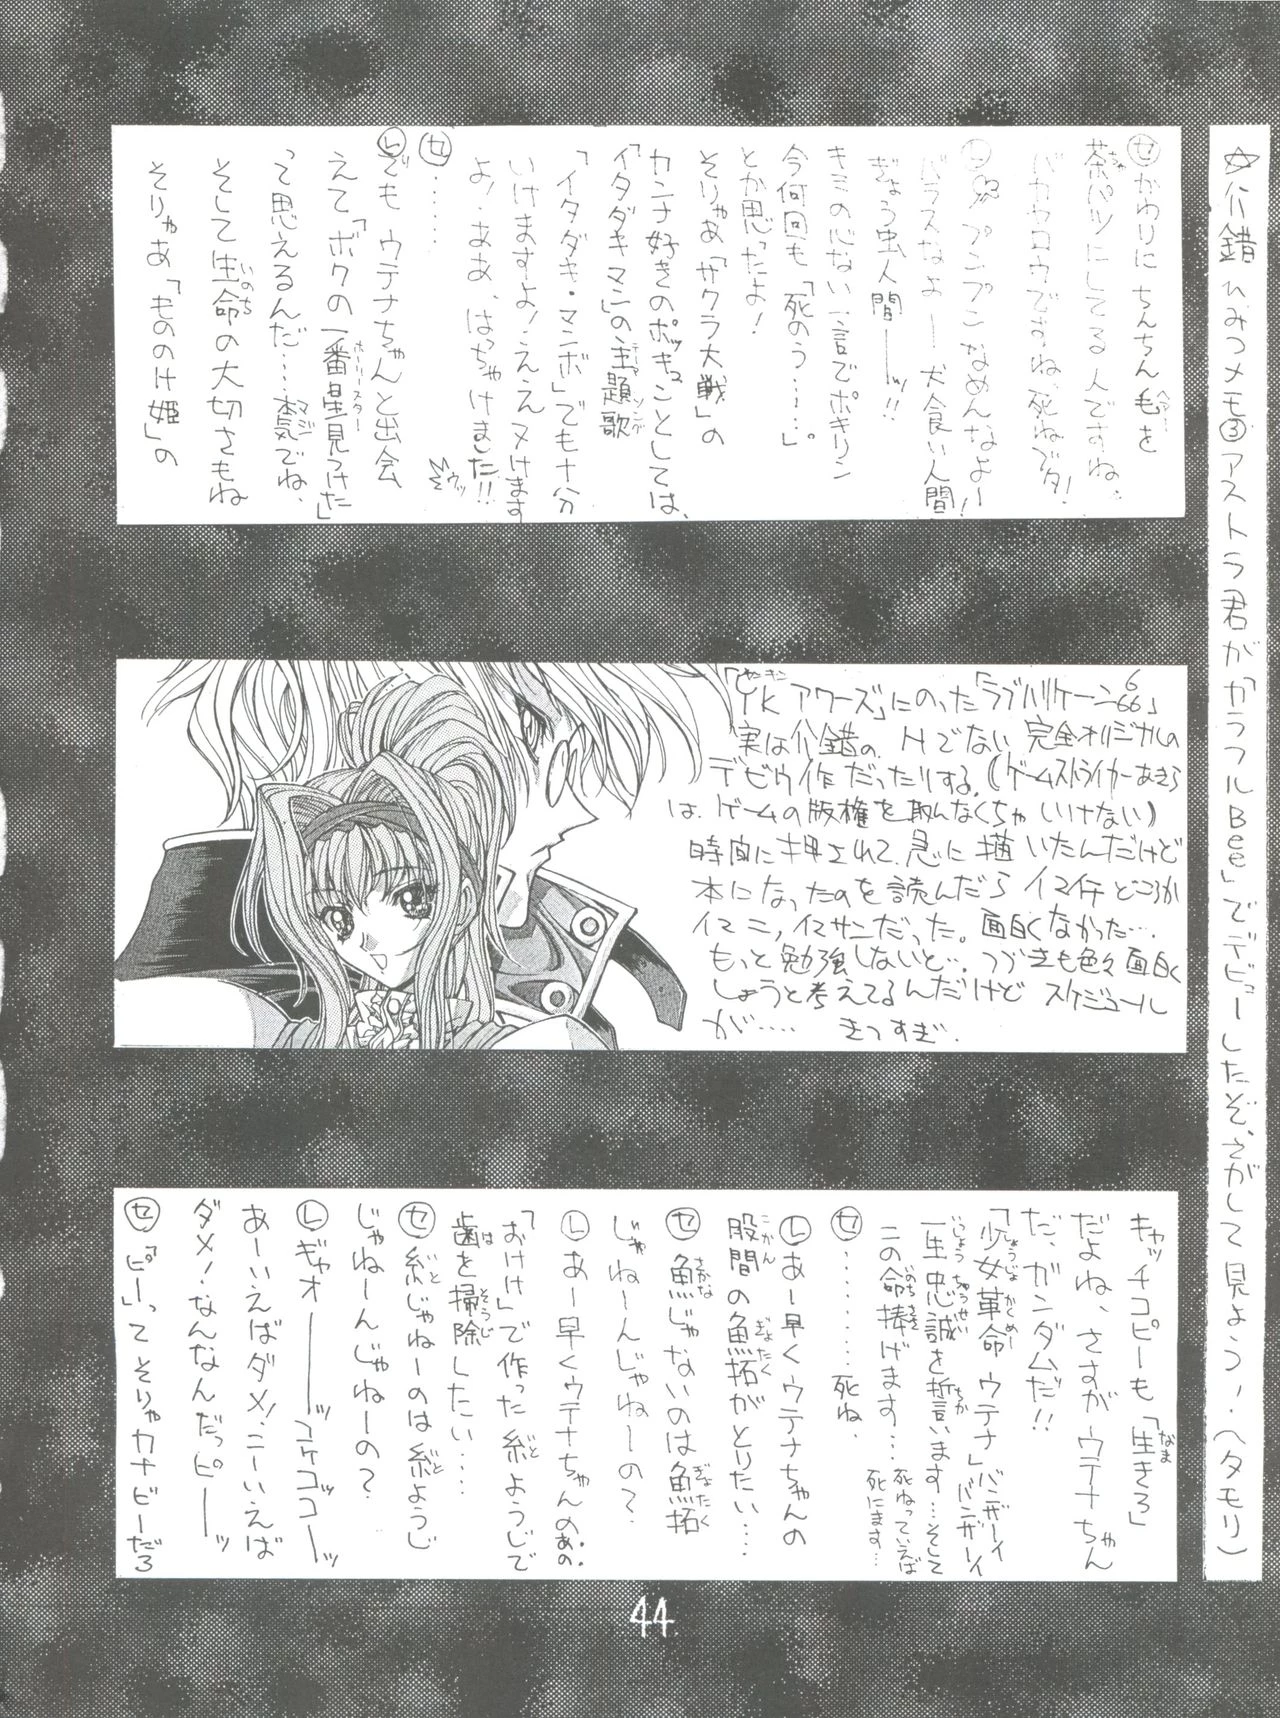 ☆介錯ひみつメモ③アストラ君がカラフルBee」でデビューしたぞ、さがして見よう!(ヘタモリ)
セかわりにちんちん毛を
茶パツにしてる人ですね。
バカヤロウですね、死ねブタ!
プンプンなめんなよー!
バラスなよー犬食い人間
ぎょう虫人間――ッ!!
キミの心ない一言でポキリン
今何回も「死のう……」
とか思ったよ!
そりゃあ「サクラ大戦」の
カンナ好きのポッキュことしては、
「イタダキマン」の主題歌
「イタダキ・マンボ」でも十分
いけますよ!ええヌけます
よ!ああ、はっちゃけました!!
セ……
レでもウテナちゃんと出会
えて「ボクの一番星見つけた」
って思えるんだ…本気でね、
そして生命の大切さもね
そりゃあ「もののけ姫」の
「YKアワーズ」にのった「ラブハリケーン666」
実は介錯の、Hでない完全オリジナルの
デビウ作だったりする。(ゲームストライカーあきら
は、ゲームの版権を取んなくちゃいけない)
時間に押されて、急に描いたんだけど
本になったのを読んだらイマイチどころか
イマニ,イマサンだった。面白くなかった…
もっと勉強しないと…つづきも色々面白く
しようと考えてるんだけどスケジュール
が…… きつすぎ.
キャッチコピーも「生きろ」
だよね、さすがウテナちゃん
だ、ガンダムだ!!
「少女革命ウテナ」バンザーイバンザーイ
一生忠誠を誓います…そして
この命捧げます…死ねっていえば死にます…
セ………死ね.
レあー早くウテナちゃんの
股間の魚拓がとりたい…
セ魚じゃないのは魚拓
じゃねーんじゃねーの?
レあー早くウテナちゃんのあの
「おけけ」で作った糸ようじで
歯を掃除したい…
セ糸じゃねーのは糸ようじ
じゃねーんじゃねーの?
レギャオ――ッコケコッコーッ
あーいえばダメ!こーいえば
ダメ!なんなんだっピ――ッ
セ「ピー」ってそりゃカナビーだろ
44